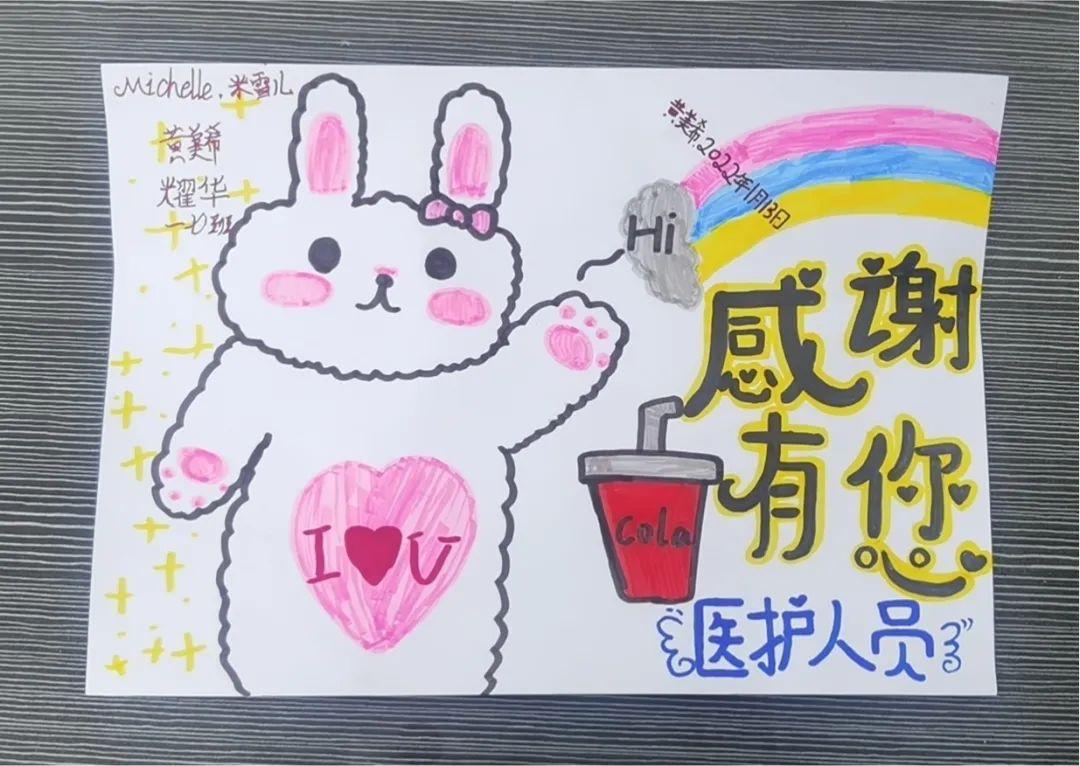 Michelle.米雪儿
黄美希
耀华
一7班
黄美希.2022年1月13日
Hi
感谢
有你
Cola
I ♥ U
医护人员